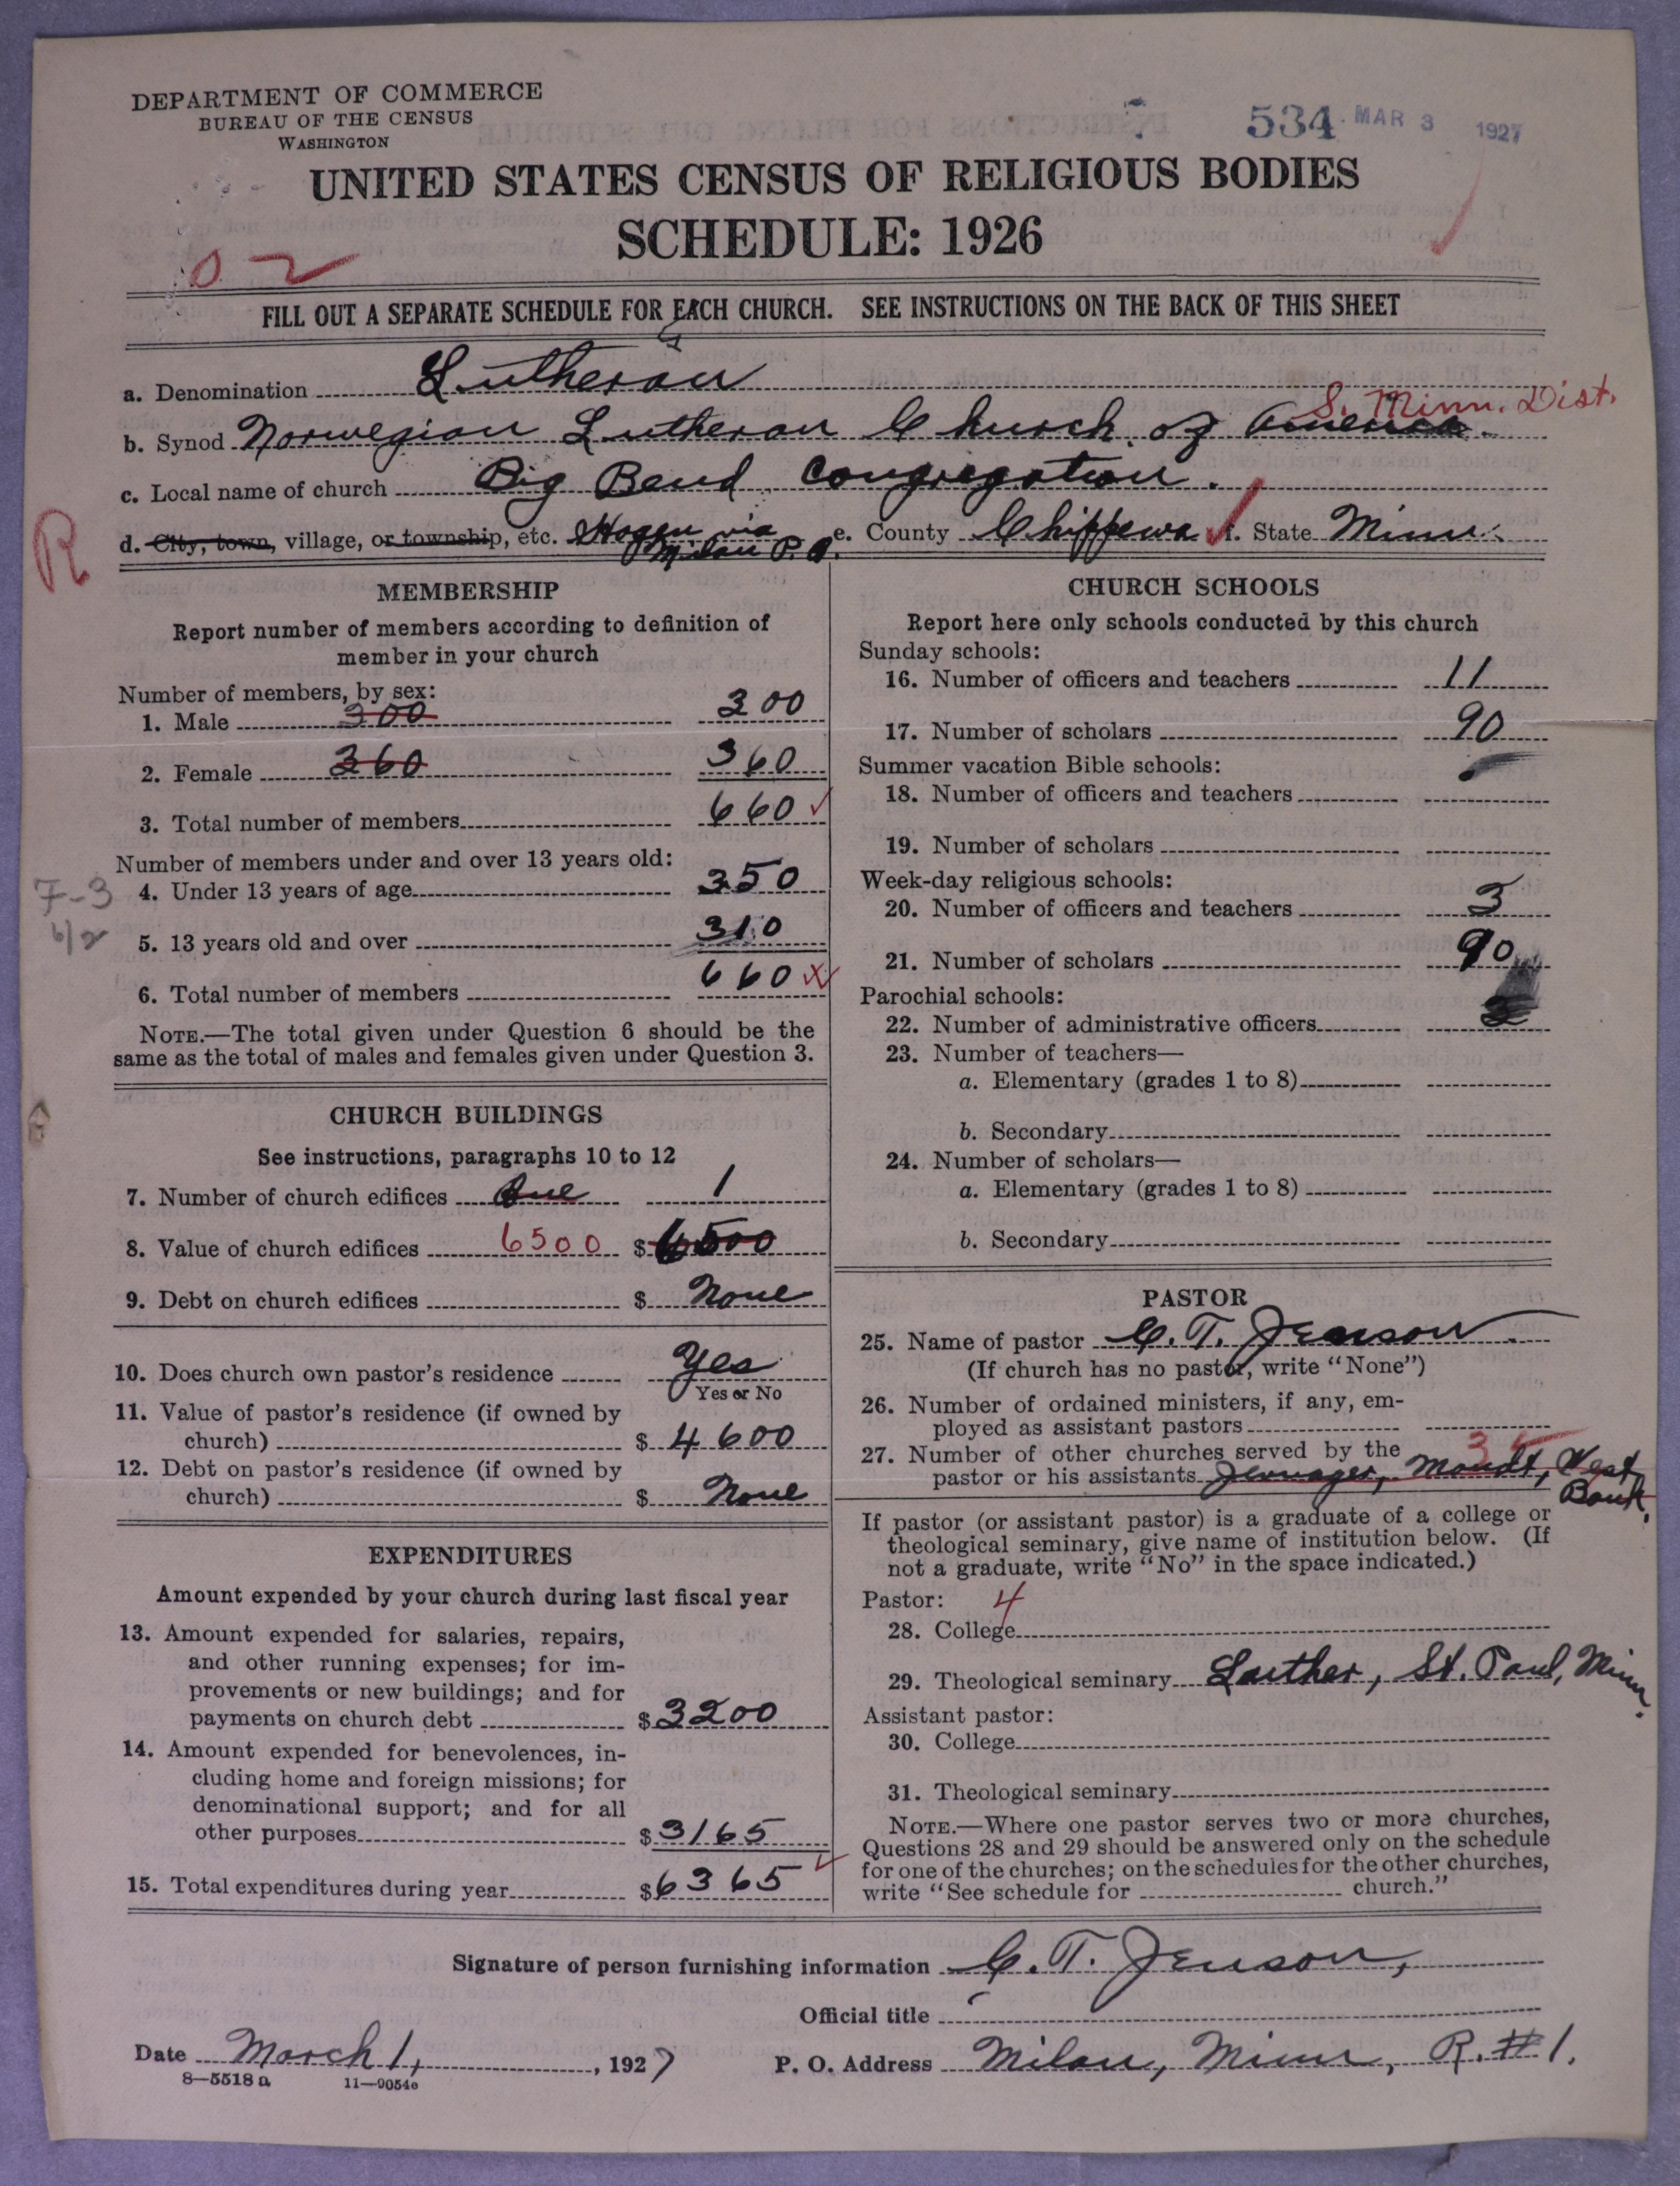 DEPARTMENT OF COMMERCE
BUREAU OF THE CENSUS
WASHINGTON
534 MAR 3 1927
UNITED STATES CENSUS OF RELIGIOUS BODIES
SCHEDULE: 1926
0 2
FILL OUT A SEPARATE SCHEDULE FOR EACH CHURCH. SEE INSTRUCTIONS ON THE BACK OF THIS SHEET
a. Denomination Lutheran
S. Minn. Dist.
b. Synod Norwegian Lutheran Church of America.
c. Local name of church Big Bend Congregation.
R
d. City, town, village, or township, etc. Hagen via Milan P. O. e. County Chippewa f. State Minn.
MEMBERSHIP
Report number of members according to definition of
member in your church
Number of members, by sex:
1. Male 300 300
2. Female 360 360
3. Total number of members 660
Number of members under and over 13 years old:
7-3
4. Under 13 years of age 350
6/2
5. 13 years old and over 310
6. Total number of members 660 X
NOTE.—The total given under Question 6 should be the
same as the total of males and females given under Question 3.
CHURCH BUILDINGS
See instructions, paragraphs 10 to 12
7. Number of church edifices One 1
8. Value of church edifices 6500 $ 6500
9. Debt on church edifices $ None
10. Does church own pastor's residence Yes
Yes or No
11. Value of pastor's residence (if owned by
church) $ 4600
12. Debt on pastor's residence (if owned by
church) $ None
EXPENDITURES
Amount expended by your church during last fiscal year
13. Amount expended for salaries, repairs,
and other running expenses; for im-
provements or new buildings; and for
payments on church debt $ 3200
14. Amount expended for benevolences, in-
cluding home and foreign missions; for
denominational support; and for all
other purposes $ 3165
15. Total expenditures during year $ 6365
CHURCH SCHOOLS
Report here only schools conducted by this church
Sunday schools:
16. Number of officers and teachers 11
17. Number of scholars 90
Summer vacation Bible schools:
18. Number of officers and teachers
19. Number of scholars
Week-day religious schools:
20. Number of officers and teachers 3
21. Number of scholars 90
Parochial schools:
22. Number of administrative officers
23. Number of teachers—
a. Elementary (grades 1 to 8)
b. Secondary
24. Number of scholars—
a. Elementary (grades 1 to 8)
b. Secondary
PASTOR
25. Name of pastor C. T. Jenson.
(If church has no pastor, write "None")
26. Number of ordained ministers, if any, em-
ployed as assistant pastors
27. Number of other churches served by the 3
pastor or his assistants Mandt, West
Bank.
If pastor (or assistant pastor) is a graduate of a college or
theological seminary, give name of institution below. (If
not a graduate, write "No" in the space indicated.)
Pastor: 4
28. College
29. Theological seminary Luther, St. Paul, Minn.
Assistant pastor:
30. College
31. Theological seminary
NOTE.—Where one pastor serves two or more churches,
Questions 28 and 29 should be answered only on the schedule
for one of the churches; on the schedules for the other churches,
write "See schedule for church."
Signature of person furnishing information C. T. Jenson,
Official title
Date March 1, 1927 P. O. Address Milan, Minn, R. #1.
8—5518 a 11—9054e